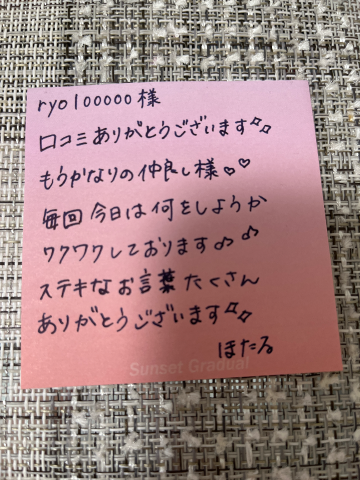 ryo100000様
口コミありがとうございます✨
もうかなりの仲良し様♡♡
毎回今日は何をしようか
ワクワクしております♪♪
ステキなお言葉たくさん
ありがとうございます✨
ほたる
Sunset Gradual